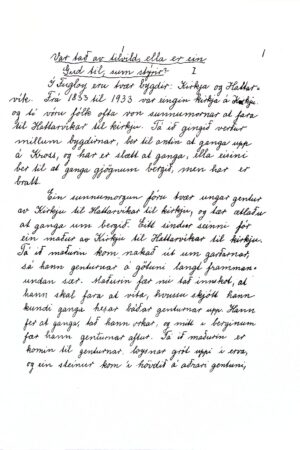 1
Var tað av tilvild, ella er ein
Gud til, sum stýrir? I
Í Fugloy eru tvær bygdir: Kirkja og Hattar-
vík. Frá 1833 til 1933 var eingin kirkja á Kirkju
og tí vóru fólk ofta von sunnumornar at fara
til Hattarvíkar til kirkju. Tá ið gingið verður
millum bygdirnar, ber til antin at ganga upp
á Kross, og har er slætt at ganga, ella eisini
ber til at ganga gjøgnum bergið, men har er
bratt.
Ein sunnumorgun fóru tvær ungar gentur
av Kirkju til Hattarvíkar til kirkju, og tær ætlaðu
at ganga um bergið. Eitt sindur seinni fór
ein maður av Kirkju til Hattarvíkar til kirkju.
Tá ið maðurin kom nakað út um garðarnar,
sá hann genturnar á gøtuni langt framman-
undan sær. Maðurin fær nú tað innskot, at
hann skal fara at vita, hvussu skjótt hann
kundi ganga hesar báðar genturnar upp. Hann
fer at ganga, tað hann orkar, og mitt í berginum
fær hann genturnar aftur. Tá ið maðurin er
komin til genturnar, losnar grót uppi í erva,
og ein steinur kom í høvdið á aðrari gentuni,